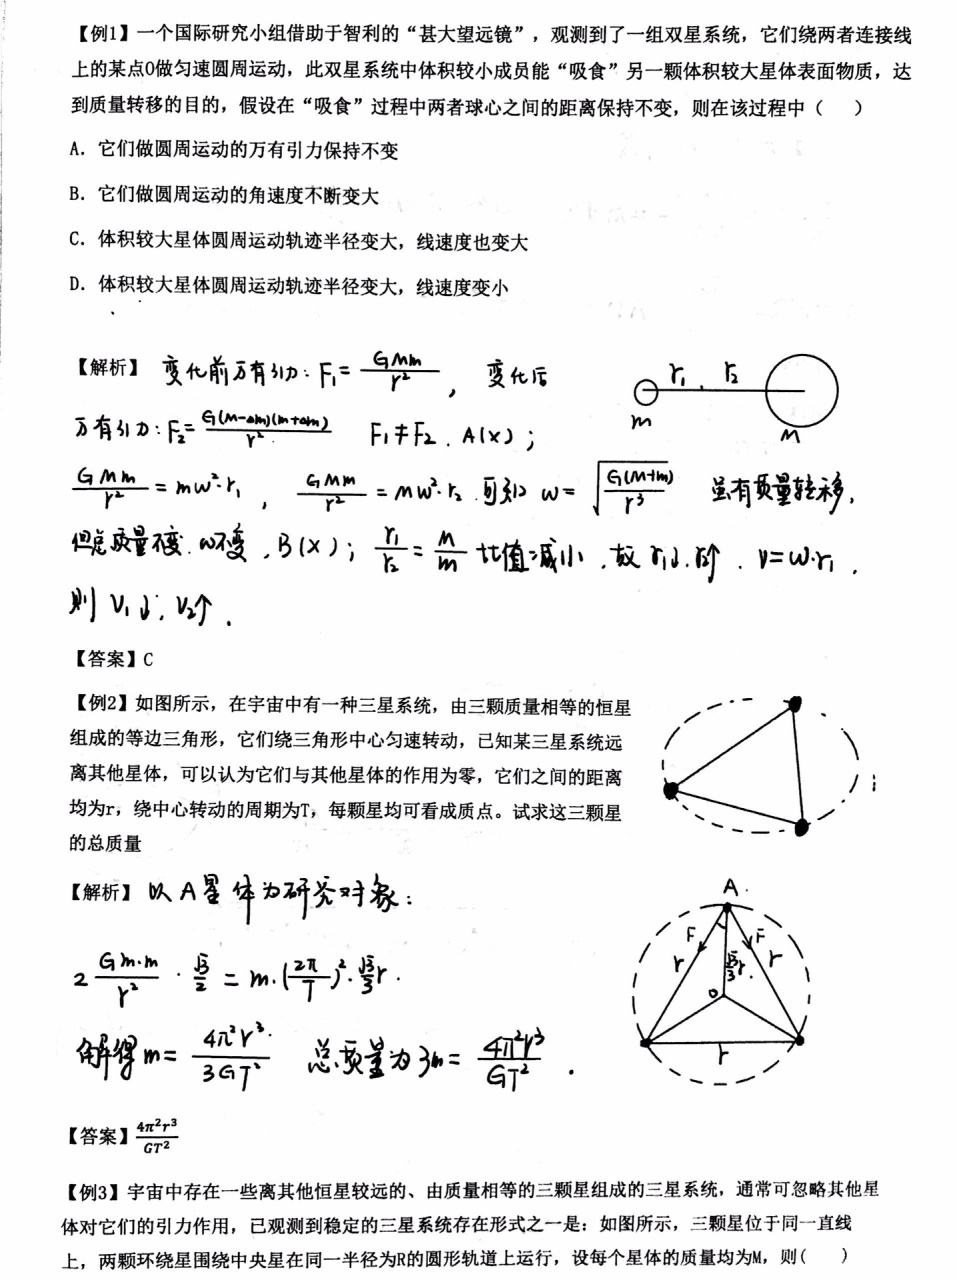 【例1】一个国际研究小组借助于智利的“甚大望远镜”，观测到了一组双星系统，它们绕两者连接线
上的某点O做匀速圆周运动，此双星系统中体积较小成员能“吸食”另一颗体积较大星体表面物质，达
到质量转移的目的，假设在“吸食”过程中两者球心之间的距离保持不变，则在该过程中（ ）
A．它们做圆周运动的万有引力保持不变
B．它们做圆周运动的角速度不断变大
C．体积较大星体圆周运动轨迹半径变大，线速度也变大
D．体积较大星体圆周运动轨迹半径变大，线速度变小
【解析】变化前万有引力：F₁=GMm/r²，变化后
r₁ r₂
m M
万有引力：F₂=G(M-Δm)(m+Δm)/r² F₁≠F₂．A(×)；
GMm/r²=mω²·r₁，GMm/r²=Mω²·r₂．可知ω=√(G(M+m)/r³) 虽有质量转移，
但总质量不变．ω不变，B(×)；r₁/r₂=M/m 比值减小．故r₁↓．r₂↑．v=ω·r₁．
则V₁↓，V₂↑．
【答案】C
【例2】如图所示，在宇宙中有一种三星系统，由三颗质量相等的恒星
组成的等边三角形，它们绕三角形中心匀速转动，已知某三星系统远
离其他星体，可以认为它们与其他星体的作用为零，它们之间的距离
均为r，绕中心转动的周期为T，每颗星均可看成质点。试求这三颗星
的总质量
【解析】以A星体为研究对象：
A
F F
r √3/3r r
O
r
2 Gm·m/r² · √3/2 = m·(2π/T)²·√3/3r．
解得m=4π²r³/3GT² 总质量为3m=4π²r³/GT²．
【答案】4π²r³/GT²
【例3】宇宙中存在一些离其他恒星较远的、由质量相等的三颗星组成的三星系统，通常可忽略其他星
体对它们的引力作用，已观测到稳定的三星系统存在形式之一是：如图所示，三颗星位于同一直线
上，两颗环绕星围绕中央星在同一半径为R的圆形轨道上运行，设每个星体的质量均为M，则( )